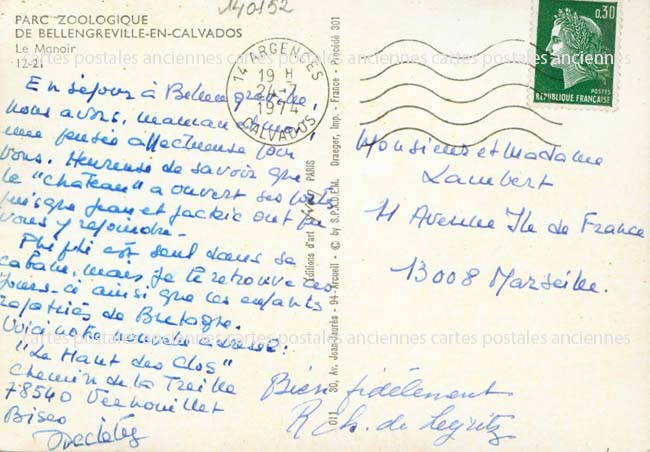 140152
PARC ZOOLOGIQUE
DE BELLENGREVILLE-EN-CALVADOS
Le Manoir
12-21
14 ARGENCES
19 H
24-7
1974
CALVADOS
0,30
POSTES
REPUBLIQUE FRANÇAISE
cartes postales anciennes cartes postales anciennes cartes postales anciennes
En séjour à Bellengreville,
nous avons, maman et moi,
une pensée affectueuse pour
vous. Heureuse de savoir que
le "château" a ouvert ses
puisque Jean et Jackie ont pu
vous y rejoindre.
est seul dans sa
cabane, mais je le retrouve ces
jours-ci ainsi que les enfants
rapatriés de Bretagne.
Voici notre nouvelle adresse:
"Le Haut des Clos"
Chemin de la Treille
78540 Vernouillet
Bises
Editions d'art YVON PARIS
011 30, Av. Jean-Jaurès - 94-Arcueil - © by S.P.A.D.E.M. Draeger, Imp. - France - Procédé 301
Monsieur et Madame
Lambert
11 Avenue Ile de France
13008 Marseille.
cartes postales anciennes cartes postales anciennes cartes postales anciennes
Bien fidèlement
R Ch. de